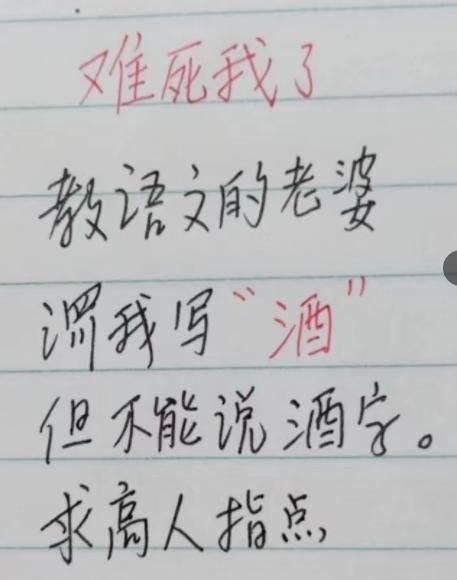 难死我了
教语文的老婆
我写“酒”
但不能说酒字。
求高人指点